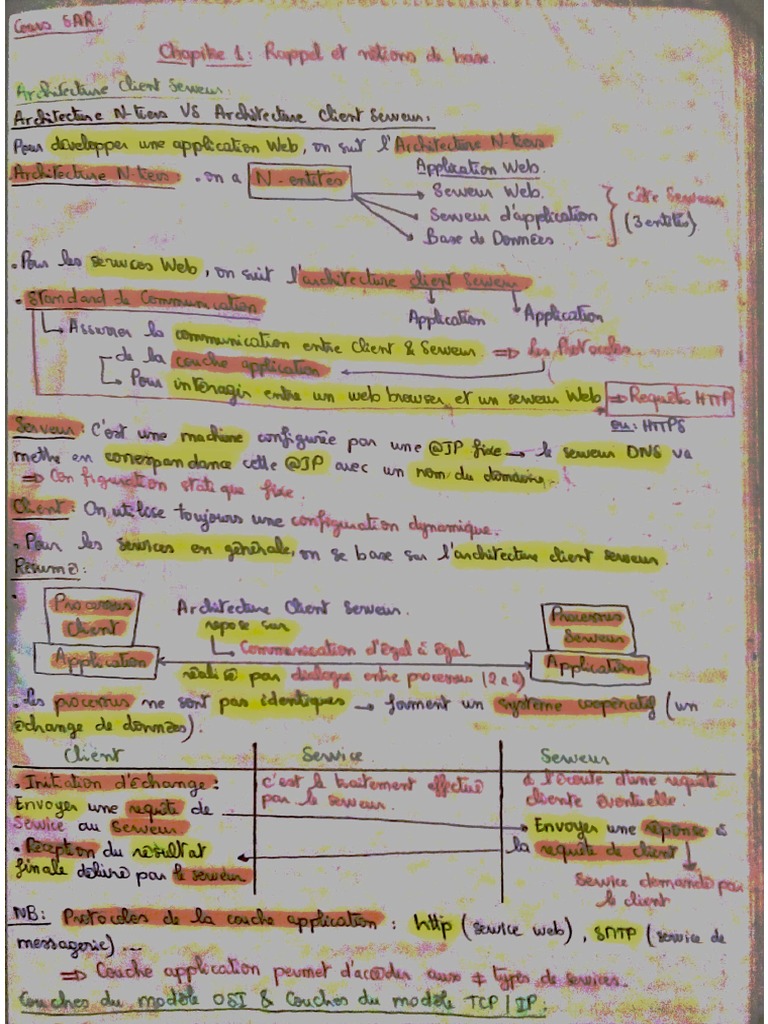 Cours SAR:
Chapitre 1: Rappel et notions de base.
Architecture Client Serveur.
Architecture N-tiers VS Architecture Client Serveur.
Pour développer une application Web, on suit l'Architecture N-tiers.
Architecture N-tiers: . on a N-entités
Application Web.
Serveur Web.
Serveur d'application
Base de Données
côté Serveur
(3 entités)
. Pour les services Web, on suit l'architecture client Serveur
Application Application
. Standard de Communication
Assurer la communication entre Client & Serveur. ⇒ Les Protocoles.
de la couche application
Pour interagir entre un web browser et un serveur Web ⇒ Requêts HTTP
ou: HTTPS
Serveur: C'est une machine configurée par une @IP fixe → le serveur DNS va
mettre en correspandance cette @IP avec un nom du domaine.
⇒ Configuration statique fixe.
Client: On utilise toujours une configuration dynamique.
. Pour les services en générale, on se base sur l'architecture client serveur.
Résumé:
. Processus Client
Architecture Client Serveur.
Processus Serveur
repose sur
Communication d'égal à égal
Application
Application
réalisé par dialogue entre processus (2 à 2)
. Les processus ne sont pas identiques → forment un système coopératif (un
échange de données).
Client Service Serveur
. Initiation d'échange:
Envoyer une requête de
service au Serveur
. Reception du résultat
finale délivré par le serveur
c'est le traitement effectué
par le serveur.
à l'écoute d'une requête
cliente éventuelle.
Envoyer une réponse à
la requête de client
Service demandé par
le client
NB: Protocoles de la couche application: http (service web), SMTP (service de
messagerie) ...
⇒ Couche application permet d'accéder aux ≠ types de services.
Couches du modèle OSI & Couches du modèle TCP/IP: